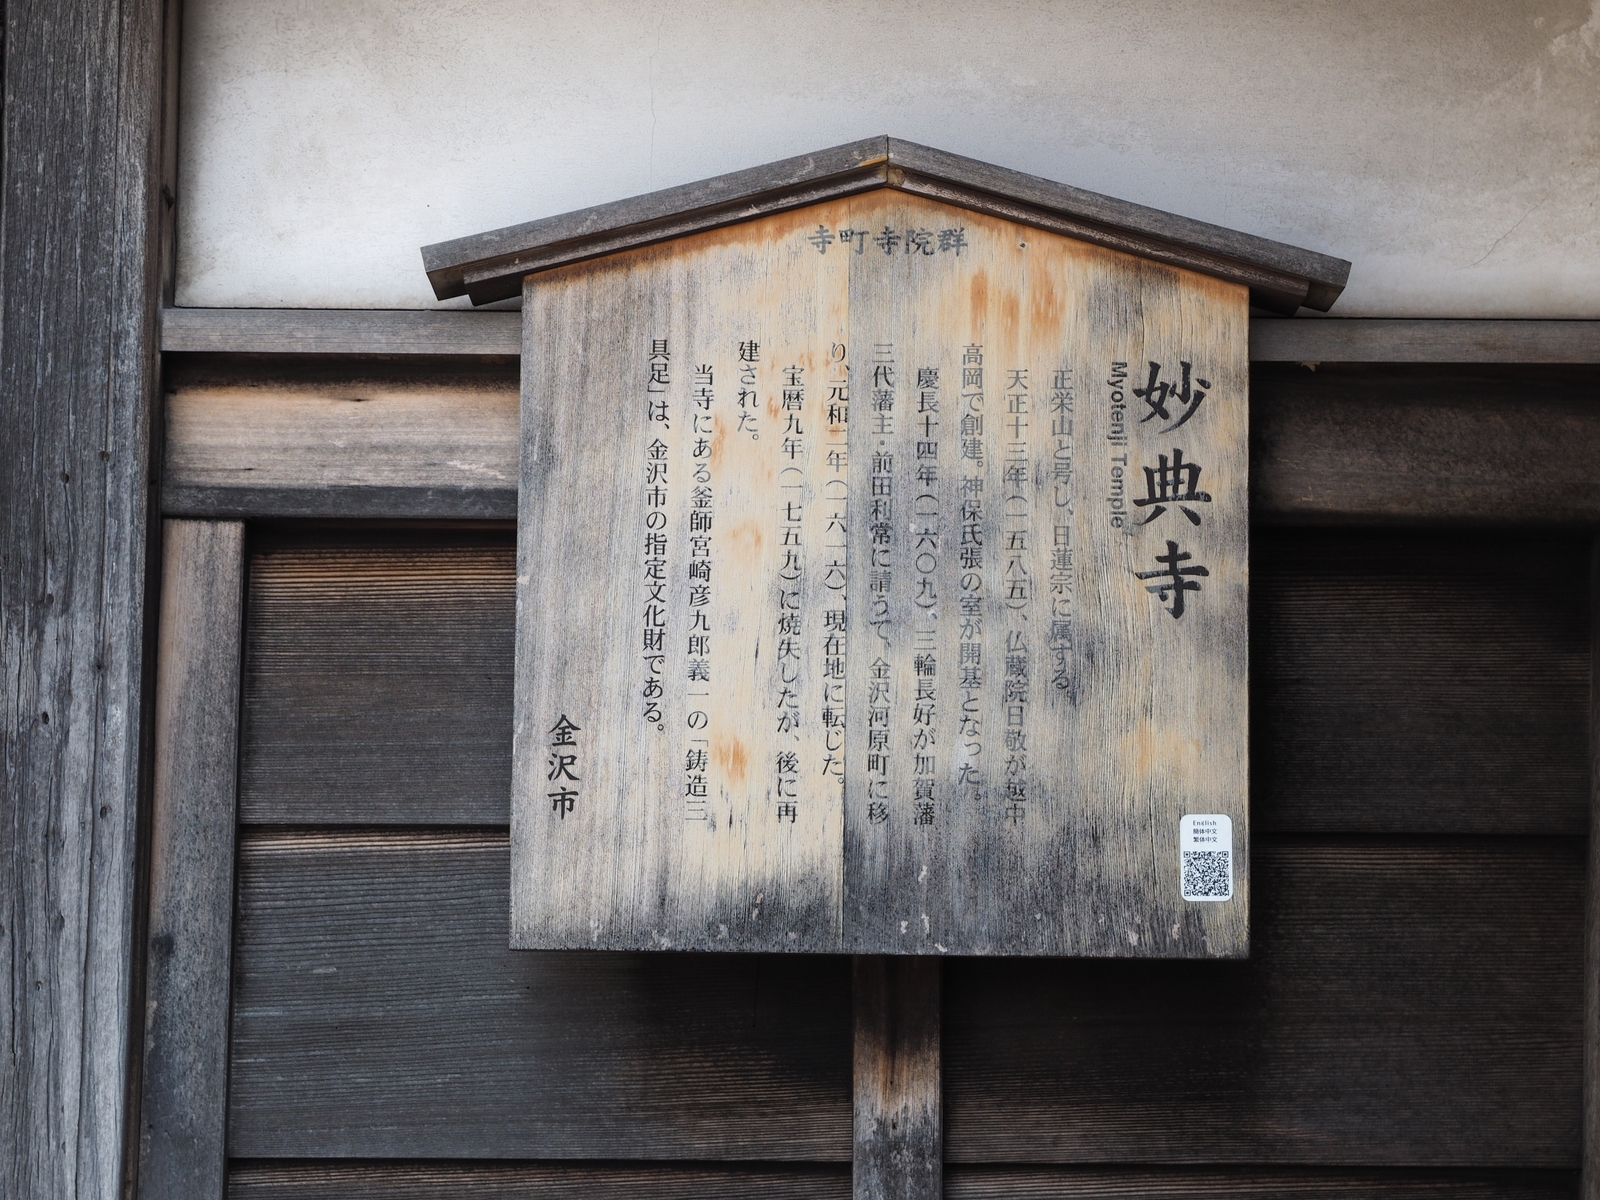 寺町寺院群
妙典寺
Myotenji Temple
正栄山と号し、日蓮宗に属する。
天正十三年（一五八五）、仏蔵院日敬が越中
高岡で創建。神保氏張の室が開基となった。
慶長十四年（一六〇九）、三輪長好が加賀藩
三代藩主・前田利常に請うて、金沢河原町に移
り、元和二年（一六一六）、現在地に転じた。
宝暦九年（一七五九）に焼失したが、後に再
建された。
当寺にある釜師宮崎彦九郎義一の「鋳造三
具足」は、金沢市の指定文化財である。
金沢市
English
簡体中文
繁体中文